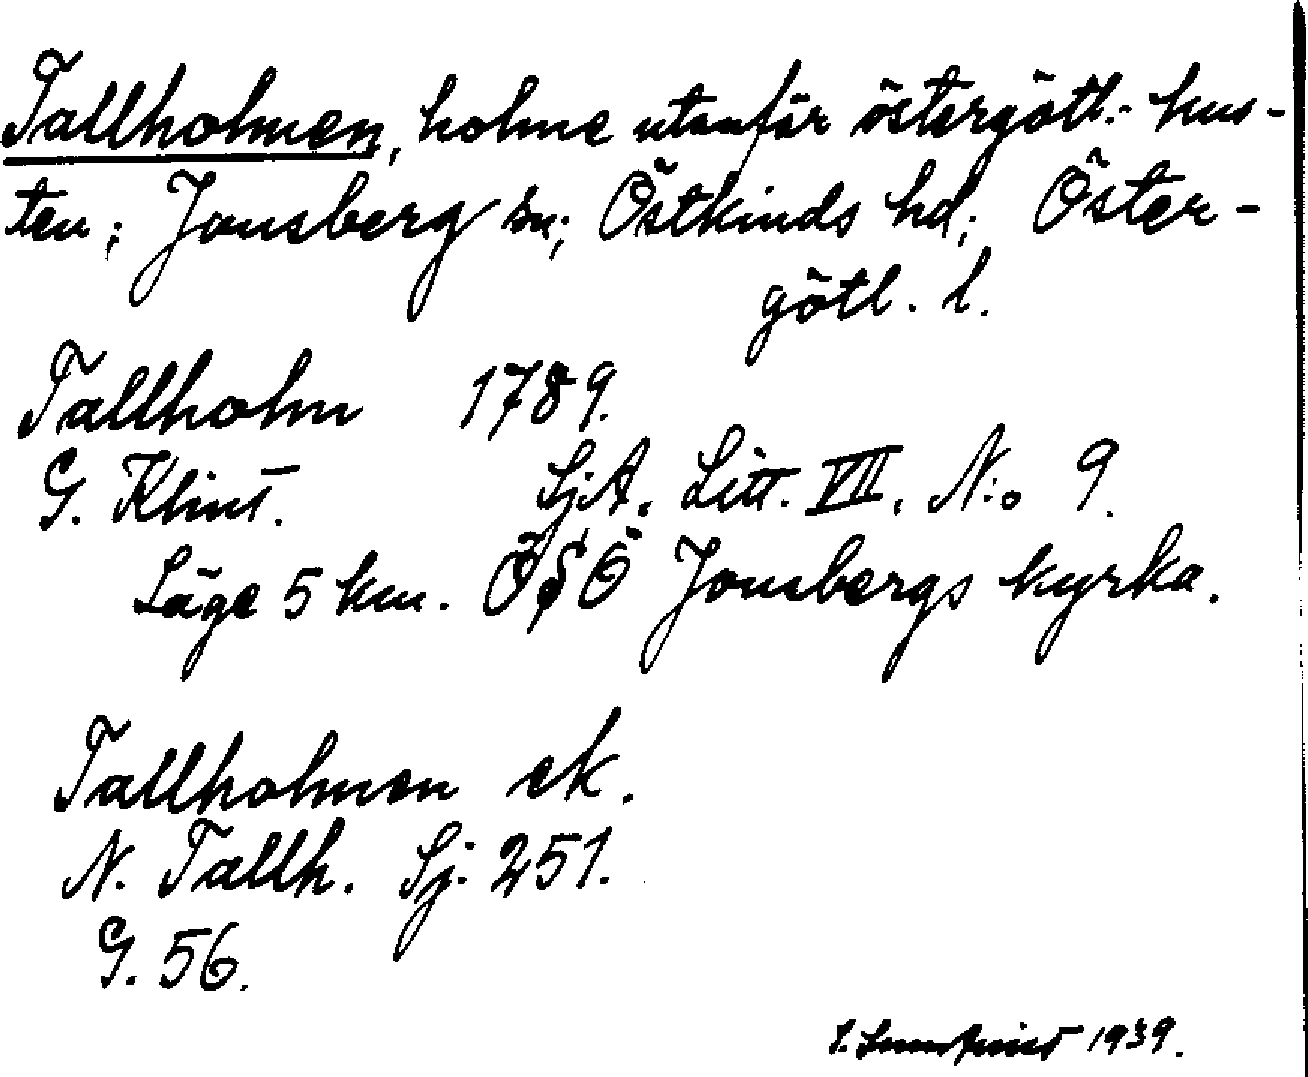 Tallholmen, holme utanför östergötl:- kus-
ten; Jonsberg sn; Östkinds hd; Öster-
götl. l.
Tallholm 1789.
G. Klint. SjA. Litt. VII. N:o 9.
Läge 5 km. ÖSÖ Jonsbergs kyrka.
Tallholmen ek.
N. Tallh. Sj: 251.
G. 56.
1939.